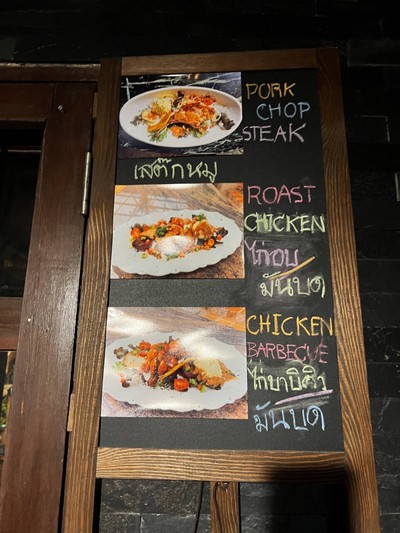 PORK
CHOP
STEAK
เสต๊กหมู
ROAST
CHICKEN
ไก่อบ
มันบด
CHICKEN
BARBECUE
ไก่บาบิคิว
มันบด